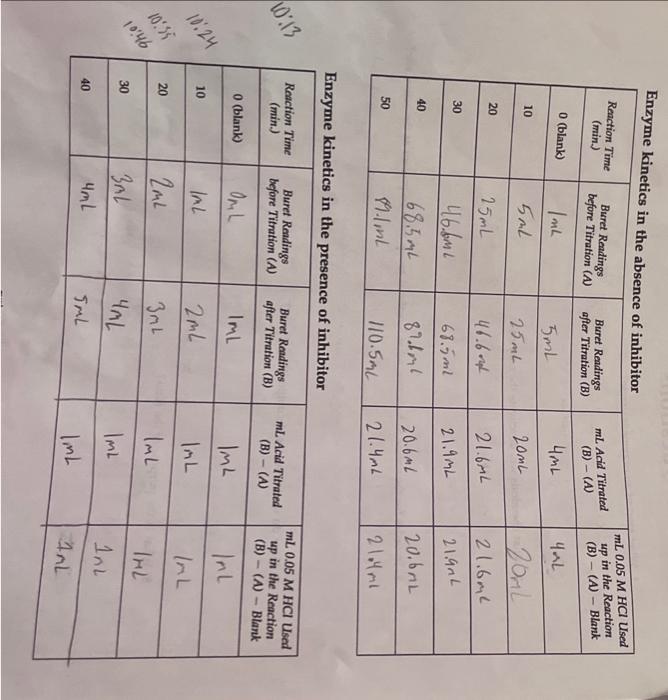 Enzyme kinetics in the absence of inhibitor
Reaction Time (min.) Buret Readings before Titration (A) Buret Readings after Titration (B) mL Acid Titrated (B) – (A) mL 0.05 M HCl Used up in the Reaction (B) – (A) – Blank
0 (blank) 1mL 5mL 4mL 4mL
10 5mL 25mL 20mL 20mL
20 25mL 46.6mL 21.6mL 21.6mL
30 46.6mL 68.5mL 21.9mL 21.9mL
40 68.5mL 89.1mL 20.6mL 20.6mL
50 89.1mL 110.5mL 21.4mL 21.4mL
Enzyme kinetics in the presence of inhibitor
Reaction Time (min.) Buret Readings before Titration (A) Buret Readings after Titration (B) mL Acid Titrated (B) – (A) mL 0.05 M HCl Used up in the Reaction (B) – (A) – Blank
10:13 0 (blank) 0mL 1mL 1mL 1mL
10:24 10 1mL 2mL 1mL 1mL
10:35 20 2mL 3mL 1mL 1mL
10:46 30 3mL 4mL 1mL 1mL
40 4mL 5mL 1mL 1mL